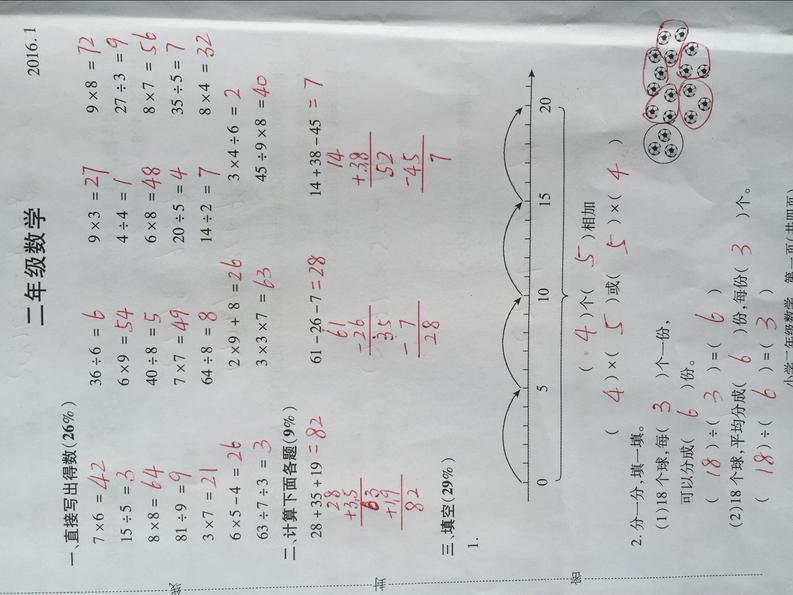 2016.1
二年级数学
一、直接写出得数(26%)
7×6=42 36÷6=6 9×3=27 9×8=72
15÷5=3 6×9=54 4÷4=1 27÷3=9
8×8=64 40÷8=5 6×8=48 8×7=56
81÷9=9 7×7=49 20÷5=4 35÷5=7
3×7=21 64÷8=8 14÷2=7 8×4=32
6×5-4=26 2×9+8=26 3×4÷6=2
63÷7÷3=3 3×3×7=63 45÷9×8=40
二、计算下面各题(9%)
28+35+19=82 61-26-7=28 14+38-45=7
28 61 14
+35 -26 +38
63 35 52
+19 -7 -45
82 28 7
三、填空(29%)
1.
0 5 10 15 20
(4)个(5)相加
(4)×(5)或(5)×(4)
2.分一分,填一填。
(1)18个球,每(3)个一份,
可以分成(6)份。
(18)÷(3)=(6)
(2)18个球,平均分成(6)份,每份(3)个。
(18)÷(6)=(3)
小学二年级数学 第一页(共四页)
线 封 密